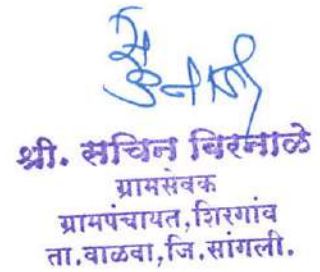 श्री. सचिन बिरनाळे
ग्रामसेवक
ग्रामपंचायत,शिरगांव
ता.वाळवा,जि.सांगली.